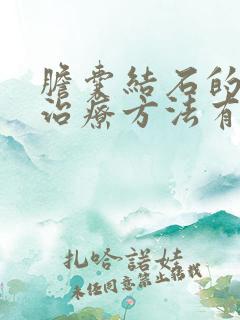 膽囊結石的
治療方法有
扎哈諾娃
未任同意禁止轉載